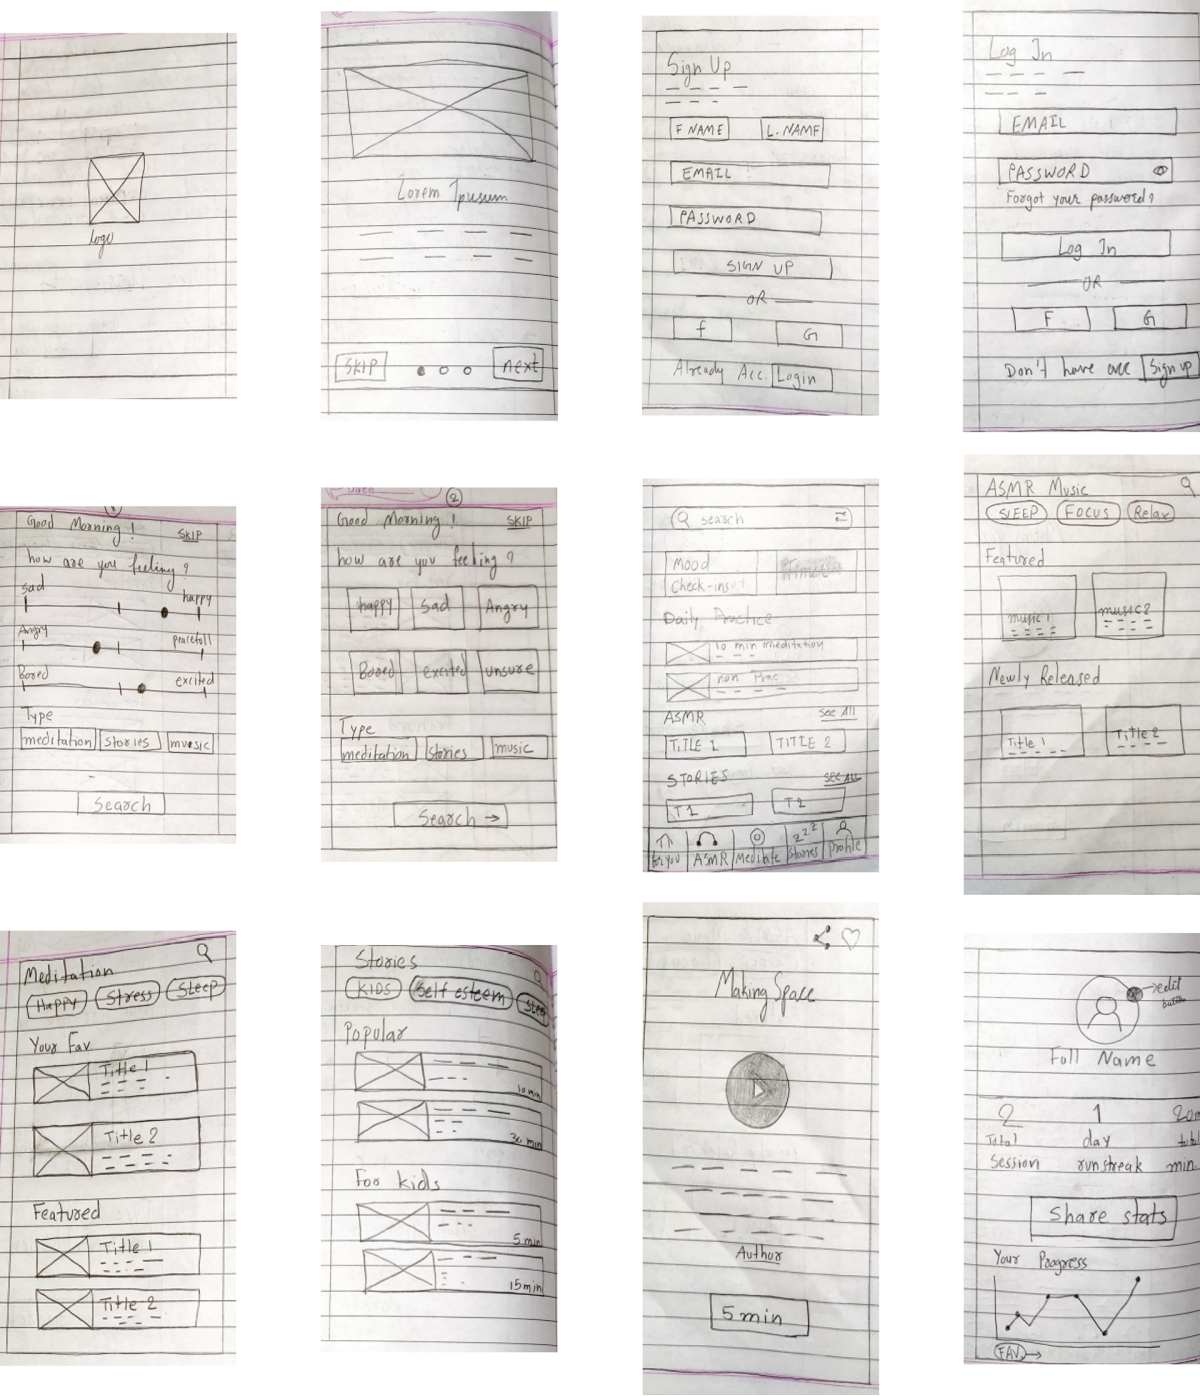 logo
Lorem Ipusum
SKIP
next
Sign Up
F NAME
L. NAME
EMAIL
PASSWORD
SIGN UP
OR
f
G
Already Acc. Login
Log In
EMAIL
PASSWORD
Forgot your password?
Log In
OR
F
G
Don't have acc Sign up
1
Good Morning!
SKIP
how are you feeling?
Sad
happy
Angry
peacefull
Bored
excited
Type
meditation
stories
music
Search
2
Good Morning!
SKIP
how are you feeling?
happy
Sad
Angry
Bored
excited
unsure
Type
meditation
stories
music
Search →
search
Mood
Check-in
Daily Practice
10 min meditation
ASMR
See All
TITLE 1
TITLE 2
STORIES
SEE ALL
T1
T2
for you
ASMR
Meditate
zzz
Stories
Profile
ASMR Music
SLEEP
FOCUS
Relax
Featured
music 1
music 2
Newly Released
Title 1
Title 2
Meditation
Happy
Stress
Sleep
Your Fav
Title 1
Title 2
Featured
Title 1
Title 2
Stories
KIDS
Self esteem
Popular
10 min
30 min
For kids
5 min
15 min
Making Space
Author
5 min
→ edit
button
Full Name
2
1
20m
Total
day
total
Session
runstreak
min
Share stats
Your Progress
FAV →